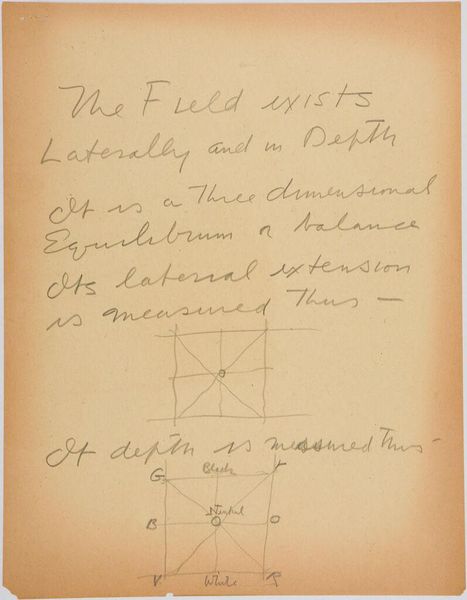 The Field exists
Laterally and in Depth
It is a Three dimensional
Equilibrium or balance
Its laterial extension
is measured Thus —
O
It depth is measured Thus —
G Black Y
Neutral
B O O
V White R